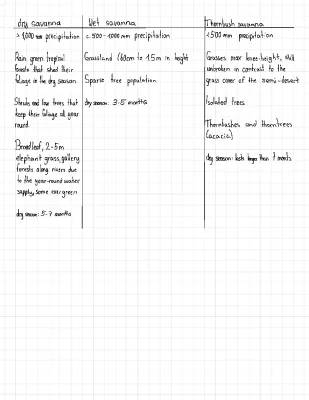 dry savanna
> 1,000 mm precipitation
Rain green tropical
forests that shed their
foliage in the dry season
Shrubs and few trees that
keep their foliage all year
round
Broadleaf, 2-5m
elephant grass, gallery
forests along rivers due
to the year-round water
supply, some evergreen
dry season: 5-7 months
Wet savanna
< 500-1000 mm precipitation
Grassland (60cm to 1.5m in height
Sparse tree population
dry season: 3-5 months
Thornbush savanna
<500 mm precipitation
Grasses max knee-height, still
unbroken in contrast to the
grass cover of the semi-desert
Isolated trees
Thornbushes and thorntrees
(acacia)
dry season: lasts longer than 7 months